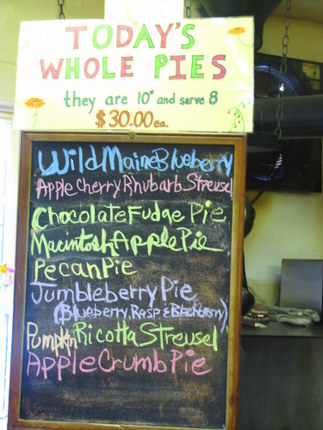 TODAY'S
WHOLE PIES
they are 10" and serve 8
$30.00 ea.
Wild Maine Blueberry
Apple Cherry Rhubarb Streusel
Chocolate Fudge Pie
Macintosh Apple Pie
Pecan Pie
Jumbleberry Pie
(Blueberry, Rasp & Blackberry)
Pumpkin Ricotta Streusel
Apple Crumb Pie